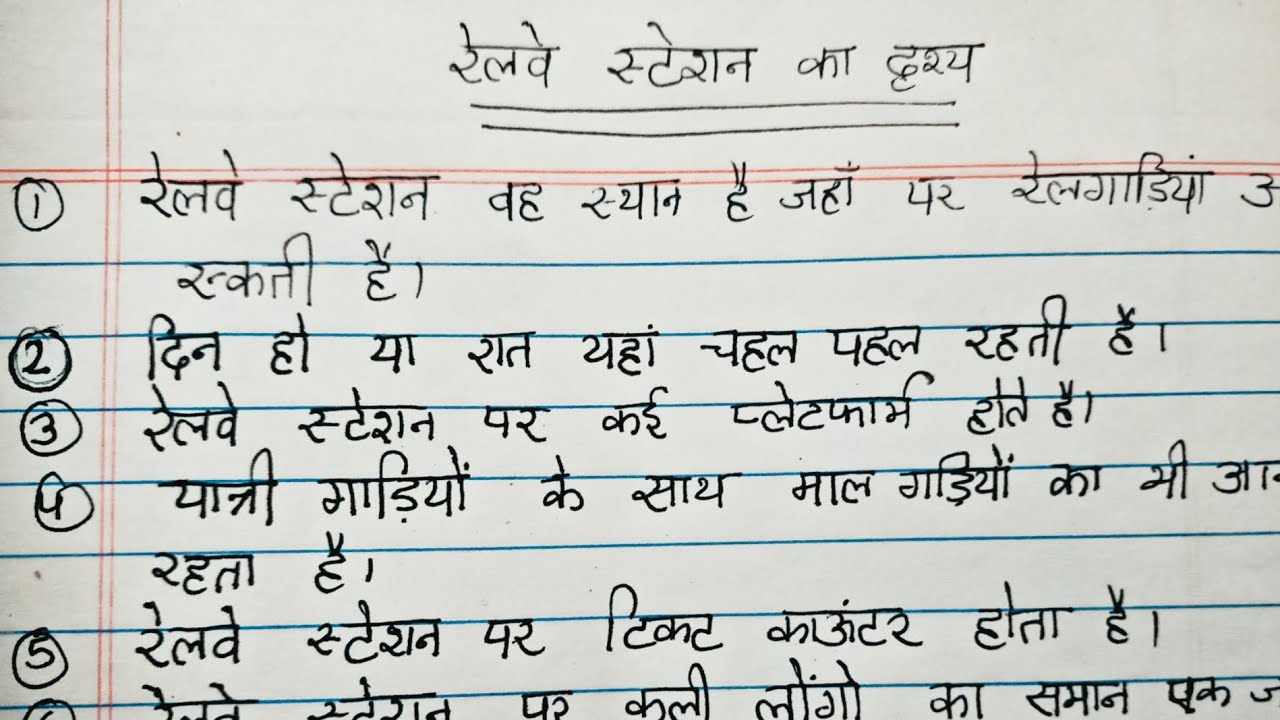 रेलवे स्टेशन का दृश्य
① रेलवे स्टेशन वह स्थान है जहाँ पर रेलगाड़ियां
रूकती है।
② दिन हो या रात यहां चहल पहल रहती है।
③ रेलवे स्टेशन पर कई प्लेटफार्म होते है।
④ यात्री गाड़ियों के साथ माल गड़ियों का भी
रहता है।
⑤ रेलवे स्टेशन पर टिकट काऊंटर होता है।
रेलवे स्टेशन पर कुली लोंगो का समान एक